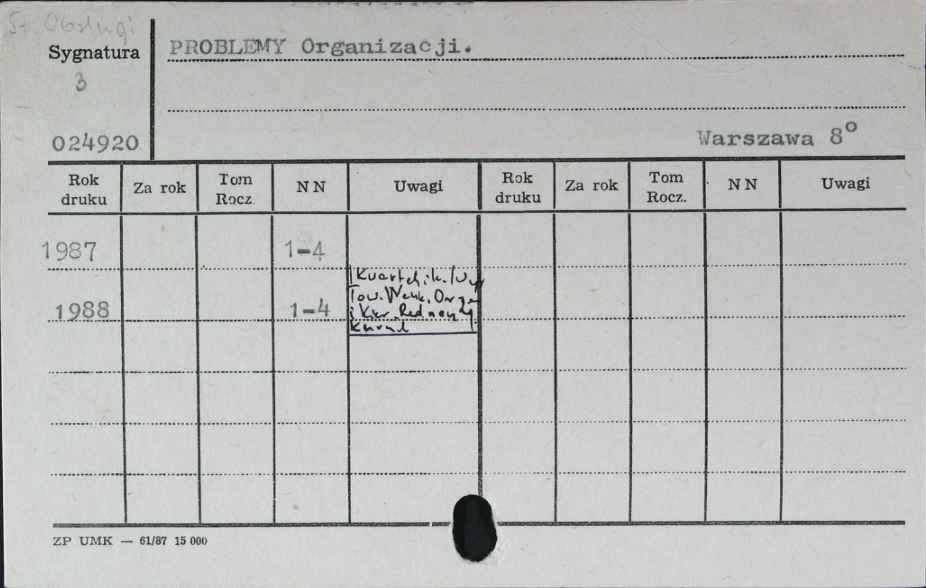 St. Obsługi
Sygnatura
PROBLEMY Organizacji.
3
024920
Warszawa 8°
Rok druku
Za rok
Tom Rocz.
N N
Uwagi
Rok druku
Za rok
Tom Rocz.
N N
Uwagi
1987 1-4
Kwartalnik.
1988 1-4
Tow. Nauk. Org.
i Kier. Red.
ZP UMK — 61/87 15 000